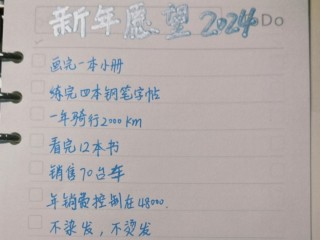 新年愿望 2024 Do
画完一本小册
练完四本钢笔字帖
一年骑行2000 km
看完12本书
销售70台车
年销费控制在48000.
不染发，不烫发